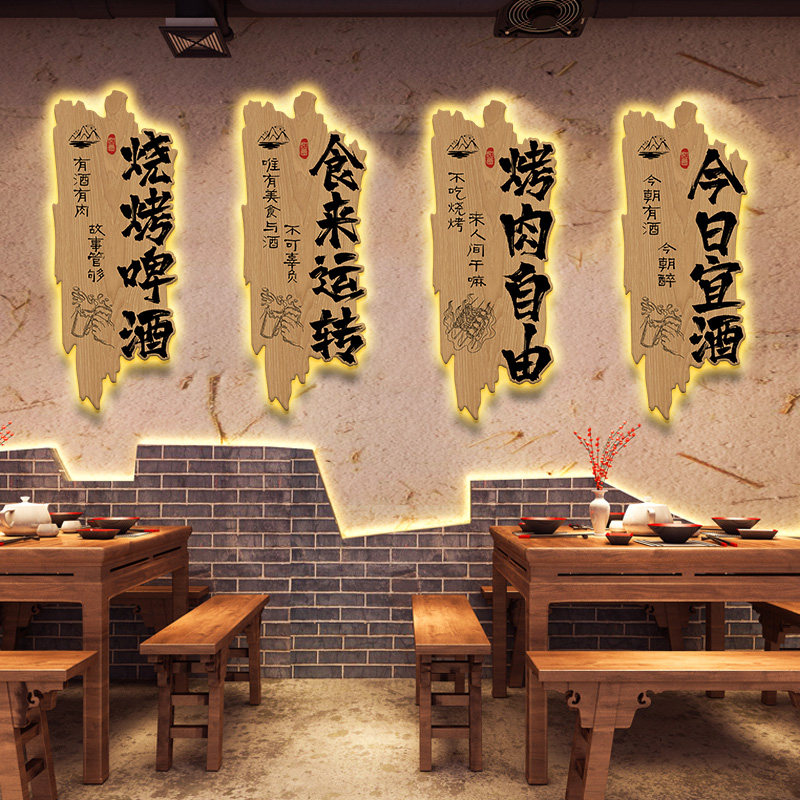 烧烤啤酒
有酒有肉
故事管够
食来运转
唯有美食与酒
不可辜负
烤肉自由
不吃烧烤
来人间干嘛
今日宜酒
今朝有酒
今朝醉